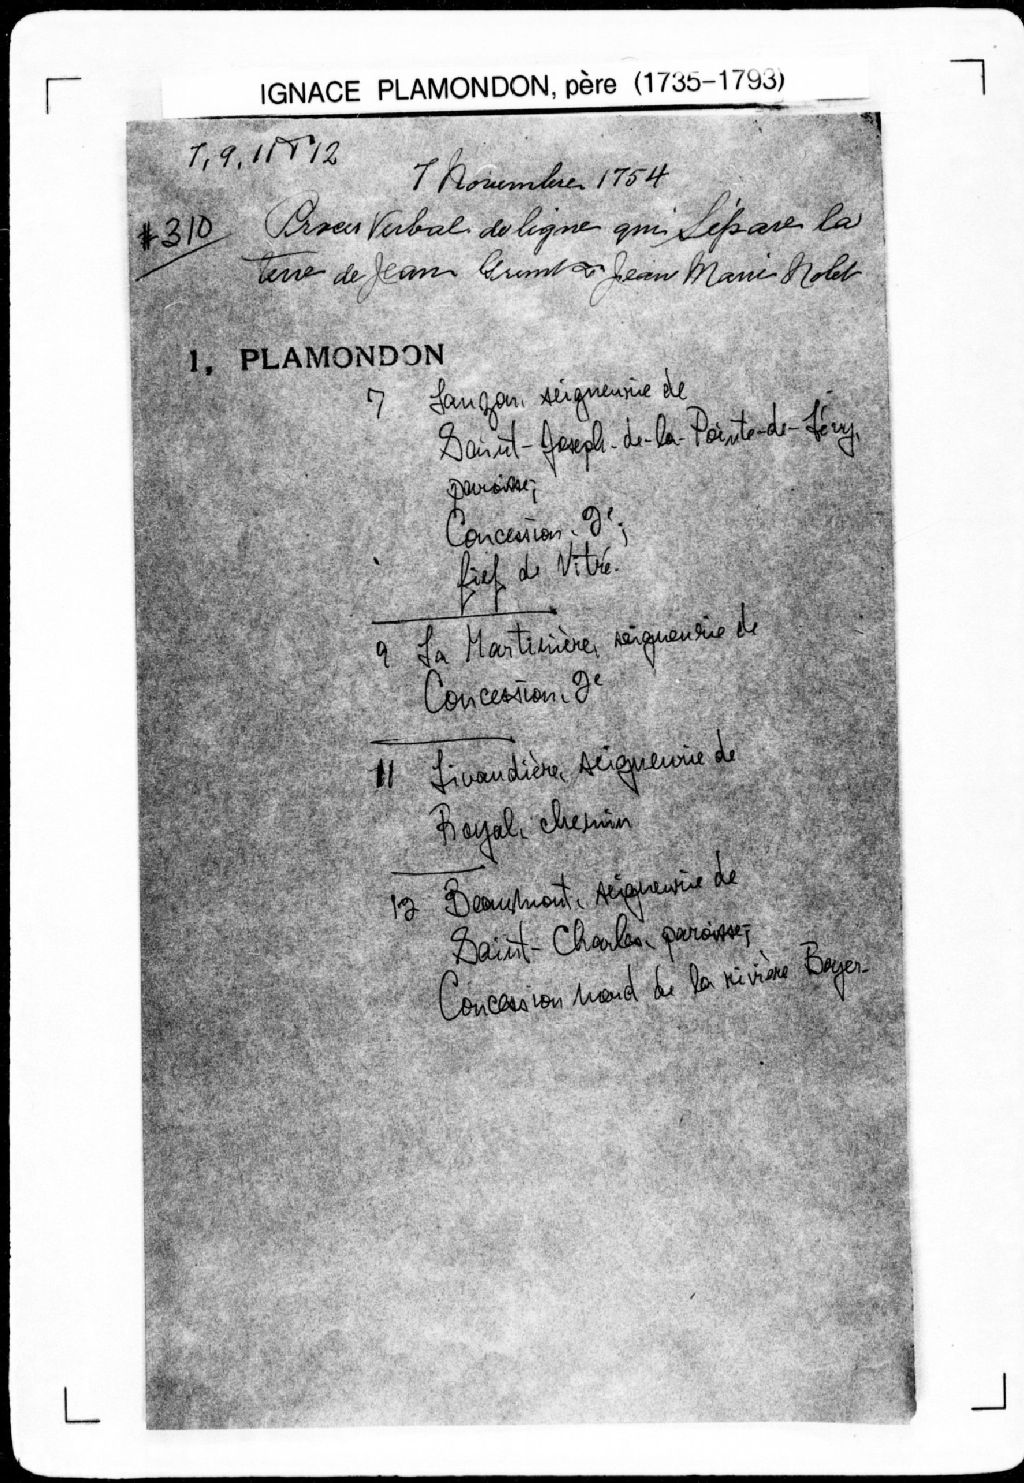 IGNACE PLAMONDON, père (1735-1793)
7, 9, 11 12
7 Novembre 1754
#310 Proces Verbal de ligne qui Sépare la
terre de Jean & Jean Marie Nolet
1, PLAMONDON
7 Lauzon, seigneurie de
Saint-Joseph-de-la-Pointe-de-Lévy,
paroisse;
Concession, 2e;
fief de Vitré.
9 La Martinière, seigneurie de
Concession, 2e
11 Livaudière, seigneurie de
Royal, chemin
12 Beaumont, seigneurie de
Saint-Charles, paroisse;
Concession nord de la rivière Boyer.